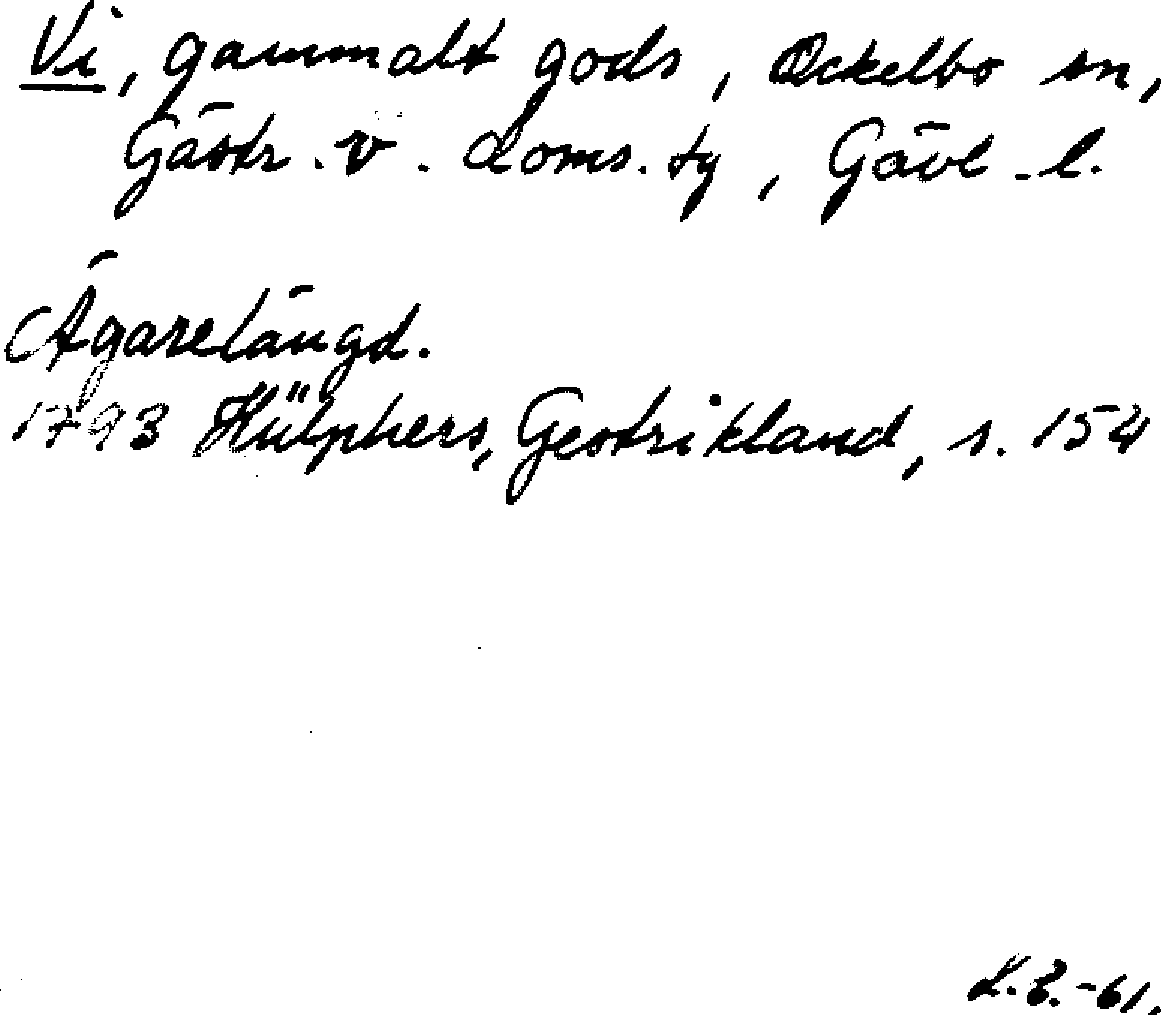 Vi, gammalt gods, Ockelbo sn,
Gästr. v. Doms. sg, Gävl. l.
Ägarelängd.
1793 Hülphers, Gestrikland, s. 154
L.E.-61.